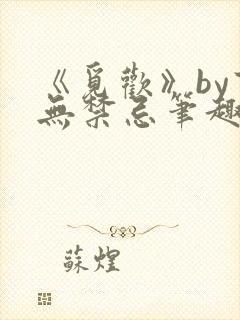 《覓歡》by
無禁忌筆趣
蘇煌